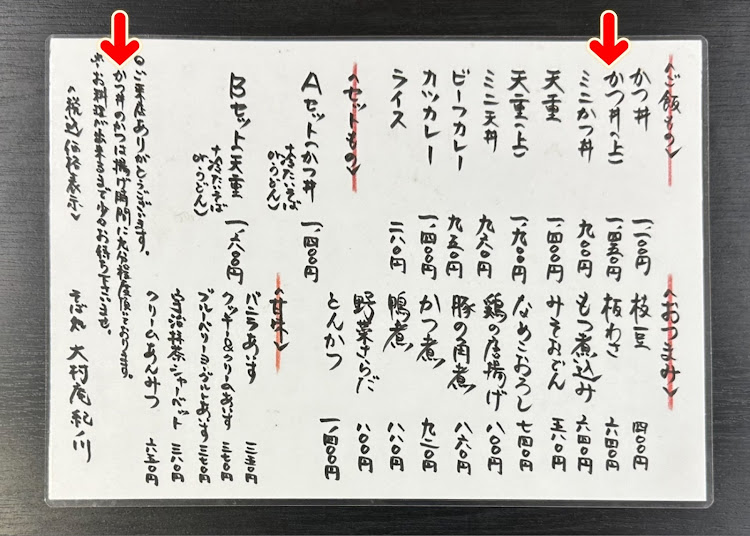 〈ご飯もの〉
かつ丼 一、一〇〇円
かつ丼(上) 一、四五〇円
ミニかつ丼 九〇〇円
天重 一、四〇〇円
天重(上) 一、九〇〇円
ミニ天丼 九六〇円
ビーフカレー 九五〇円
カツカレー 一、四〇〇円
ライス 二八〇円
〈セットもの〉
Aセット(かつ丼
+冷たいそば
orうどん) 一、四〇〇円
Bセット(天重
+冷たいそば
orうどん) 一、六〇〇円
〈おつまみ〉
枝豆 四〇〇円
板わさ 六四〇円
もつ煮込み 六四〇円
みそおでん 五八〇円
なめこおろし 七四〇円
鶏の唐揚げ 八〇〇円
豚の角煮 八六〇円
かつ煮 九二〇円
鴨煮 八八〇円
野菜さらだ 八〇〇円
とんかつ 一、四〇〇円
〈甘味〉
バニラあいす
クッキー&クリームあいす 三七〇円
ブルーベリーヨーグルトあいす 三七〇円
宇治抹茶シャーベット 三八〇円
クリームあんみつ 六五〇円
◎ご来店ありがとうございます。
かつ丼のかつは揚げ時間に九分程度頂いております。
※お料理が出来るまで少々お待ち下さいませ。
〈税込価格表示〉
そば処 大村庵紀ノ川